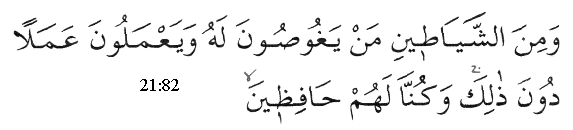 وَمِنَ الشَّيَاطِينِ مَنْ يَغُوصُونَ لَهُ وَيَعْمَلُونَ عَمَلًا
دُونَ ذٰلِكَ ۖ وَكُنَّا لَهُمْ حَافِظِينَ ۙ 21:82